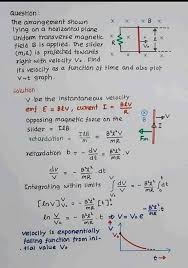 Question:
The arrangement shown
lying on a horizontal plane
Uniform transverse magnetic
field B is applied. The slider
(m,l) is projected towards
right with velocity Vo. Find
its velocity as a function of time and also plot
V-t graph.
Solution
V be the instantaneous velocity
emf E = Blv, current I = Blv/R
opposing magnetic force on the
slider = IlB
retardation = IlB/m = B²l²v/mR
retardation b = -dv/dt = B²l²v/mR
dv/v = -B²l²/mR dt
Integrating within limits ∫dv/v = -B²l²/mR ∫dt
[lnv] = -B²l²/mR [t]
ln v/vo = -B²l²/mR t ⇒ V = Vo e
Velocity is exponentially
falling function from ini-
tial value Vo
V
Vo
t→
B
I
Fm